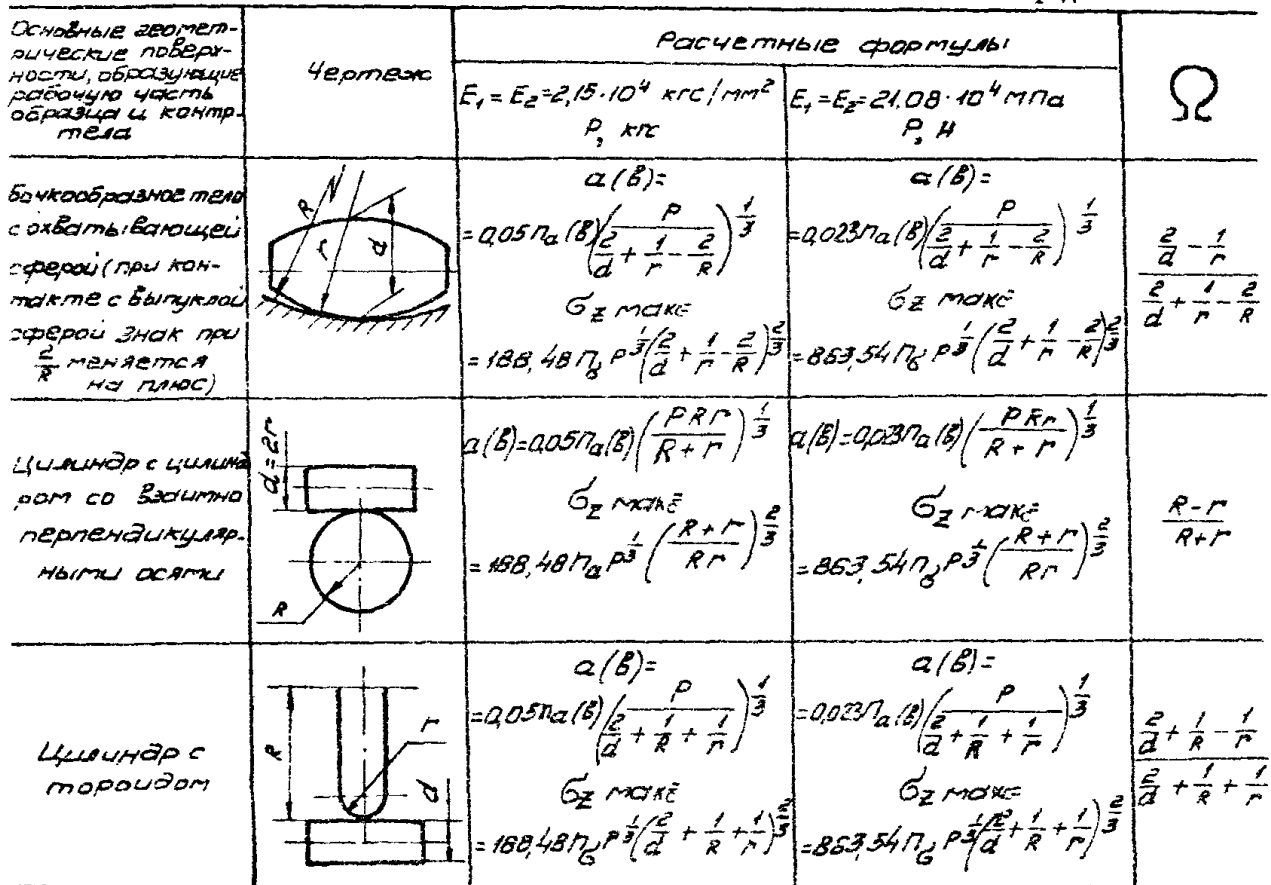 Основные геомет-
рические поверх-
ности, образующие
рабочую часть
образца и контр-
тела
Чертеж
Расчетные формулы
E₁ = E₂ = 2,15·10⁴ кгс/мм²
P, кгс
E₁ = E₂ = 21.08·10⁴ МПа
P, Н
Ω
Бочкообразное тело
с охватывающей
сферой (при кон-
такте с выпуклой
сферой знак при
2/R меняется
на плюс)
R
r
d
a(в)=
=0,05 nₐ(в) (P / (2/d + 1/r - 2/R))^(1/3)
σz макс
= 188,48 n_σ P^(1/3) (2/d + 1/r - 2/R)^(2/3)
a(в)=
=0,023 nₐ(в) (P / (2/d + 1/r - 2/R))^(1/3)
σz макс
= 863,54 n_σ P^(1/3) (2/d + 1/r - 2/R)^(2/3)
(2/d - 1/r) / (2/d + 1/r - 2/R)
Цилиндр с цилинд
ром со взаимно
перпендикуляр-
ными осями
d=2r
R
a(в)=0,05 nₐ(в) (PRr / (R + r))^(1/3)
σz макс
= 188,48 nₐ P^(1/3) ((R + r) / Rr)^(2/3)
a(в)=0,023 nₐ(в) (PRr / (R + r))^(1/3)
σz макс
= 863,54 n_σ P^(1/3) ((R + r) / Rr)^(2/3)
(R-r) / (R+r)
Цилиндр с
тороидом
R
r
d
a(в)=
=0,05 nₐ(в) (P / (2/d + 1/R + 1/r))^(1/3)
σz макс
= 188,48 n_σ P^(1/3) (2/d + 1/R + 1/r)^(2/3)
a(в)=
=0,023 nₐ(в) (P / (2/d + 1/R + 1/r))^(1/3)
σz макс
= 863,54 n_σ P^(1/3) (2/d + 1/R + 1/r)^(2/3)
(2/d + 1/R - 1/r) / (2/d + 1/R + 1/r)